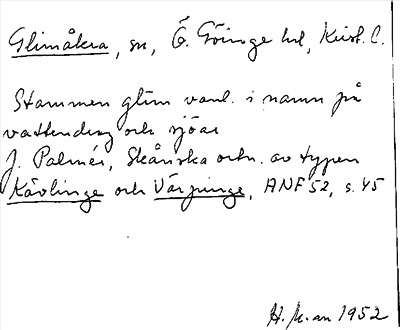 Glimåkra, sn, Ö. Göinge hd, Krist. l.
Stammen glim vanl. i namn på
vattendrag och sjöar
J. Palmér, Skånska ortn. av typen
Kävlinge och Värpinge, ANF 52, s. 45
H. K-an 1952